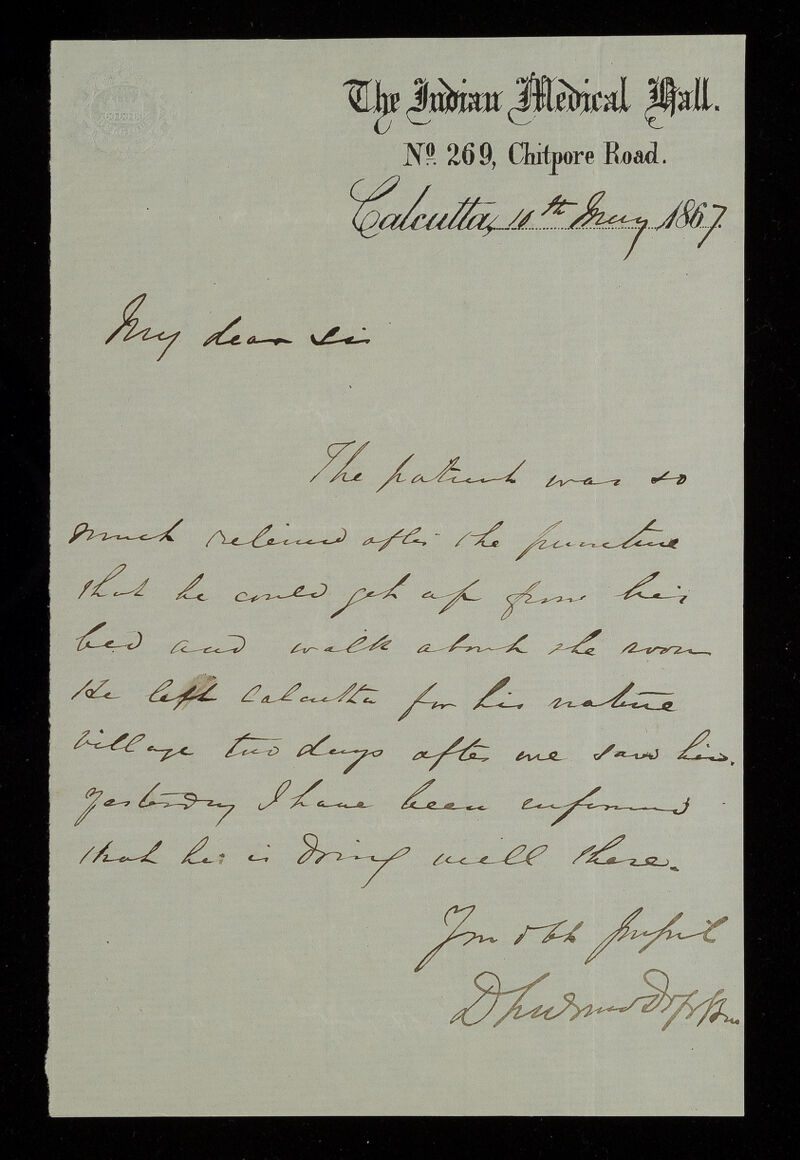 The Indian Medical Hall.
No. 269, Chitpore Road.
Calcutta, 10th May 1867.
My dear Sir
The patient was so
much relieved after the puncture
that he could get up from his
bed and walk about the room
He left Calcutta for his native
village two days after we saw him.
Yesterday I have been informed
that he is doing well there.
Your obt pupil